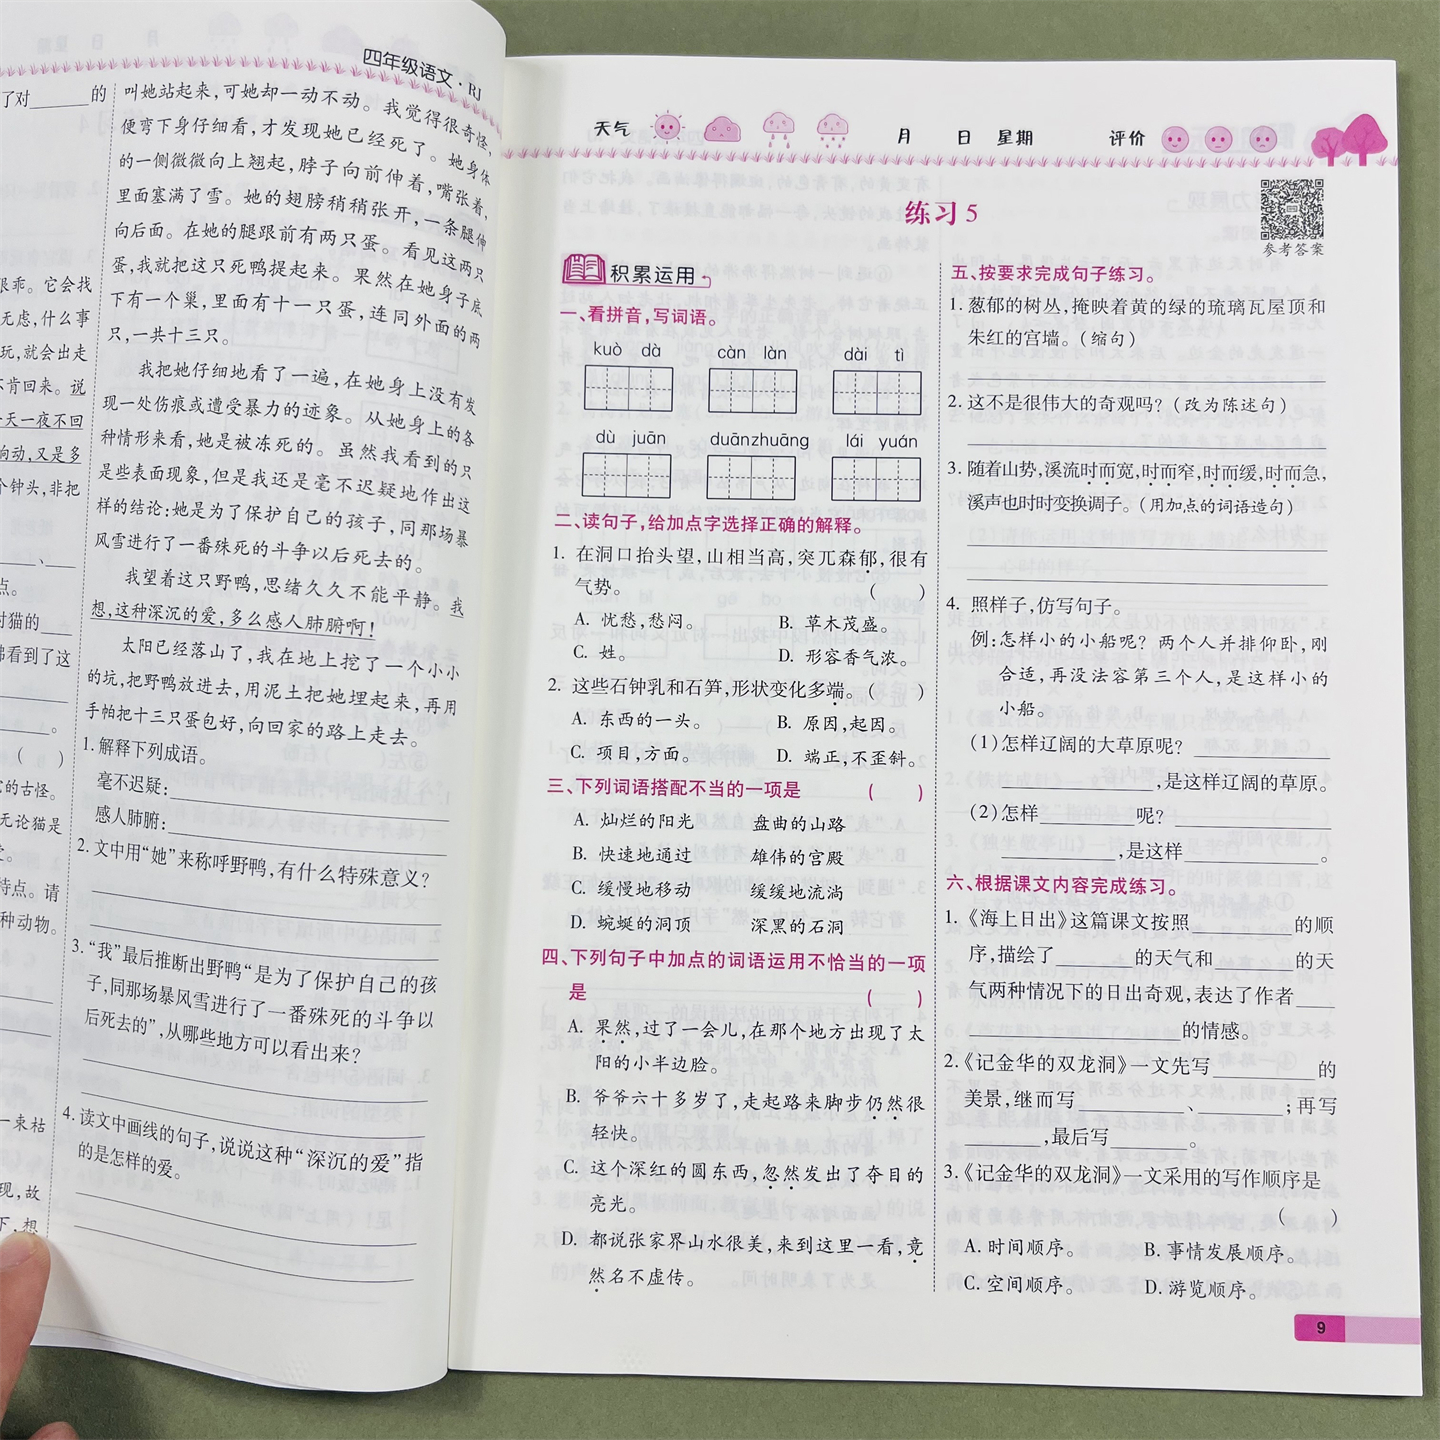 四年级语文·RJ
了对______的
很乖。它会找
无虑,什么事
玩,就会出走
不肯回来。说
一天一夜不回
响动,又是多
个钟头,非把
、
点。
对猫的
佛看到了这
。
( )
的古怪。
无论猫是
特点。请
种动物。
一束枯
现,故
下,想
叫她站起来,可她却一动不动。我觉得很奇怪,
便弯下身仔细看,才发现她已经死了。她身体
的一侧微微向上翘起,脖子向前伸着,嘴张着,
里面塞满了雪。她的翅膀稍稍张开,一条腿伸
向后面。在她的腿跟前有两只蛋。看见这两只
蛋,我就把这只死鸭提起来。果然在她身子底
下有一个巢,里面有十一只蛋,连同外面的两
只,一共十三只。
我把她仔细地看了一遍,在她身上没有发
现一处伤痕或遭受暴力的迹象。从她身上的各
种情形来看,她是被冻死的。虽然我看到的只
是些表面现象,但是我还是毫不迟疑地作出这
样的结论:她是为了保护自己的孩子,同那场暴
风雪进行了一番殊死的斗争以后死去的。
我望着这只野鸭,思绪久久不能平静。我
想,这种深沉的爱,多么感人肺腑啊!
太阳已经落山了,我在地上挖了一个小小
的坑,把野鸭放进去,用泥土把她埋起来,再用
手帕把十三只蛋包好,向回家的路上走去。
1.解释下列成语。
毫不迟疑:
感人肺腑:
2.文中用“她”来称呼野鸭,有什么特殊意义?
3.“我”最后推断出野鸭“是为了保护自己的孩
子,同那场暴风雪进行了一番殊死的斗争以
后死去的”,从哪些地方可以看出来?
4.读文中画线的句子,说说这种“深沉的爱”指
的是怎样的爱。
天气 月 日 星期 评价
练习5
参考答案
积累运用
一、看拼音,写词语。
kuò dà càn làn dài tì
dù juān duānzhuāng lái yuán
二、读句子,给加点字选择正确的解释。
1. 在洞口抬头望,山相当高,突兀森郁,很有
气势。 ( )
A. 忧愁,愁闷。 B. 草木茂盛。
C. 姓。 D. 形容香气浓。
2. 这些石钟乳和石笋,形状变化多端。( )
A. 东西的一头。 B. 原因,起因。
C. 项目,方面。 D. 端正,不歪斜。
三、下列词语搭配不当的一项是 ( )
A. 灿烂的阳光 盘曲的山路
B. 快速地通过 雄伟的宫殿
C. 缓慢地移动 缓缓地流淌
D. 蜿蜒的洞顶 深黑的石洞
四、下列句子中加点的词语运用不恰当的一项
是 ( )
A. 果然,过了一会儿,在那个地方出现了太
阳的小半边脸。
B. 爷爷六十多岁了,走起路来脚步仍然很
轻快。
C. 这个深红的圆东西,忽然发出了夺目的
亮光。
D. 都说张家界山水很美,来到这里一看,竟
然名不虚传。
五、按要求完成句子练习。
1.葱郁的树丛,掩映着黄的绿的琉璃瓦屋顶和
朱红的宫墙。(缩句)
2.这不是很伟大的奇观吗?(改为陈述句)
3.随着山势,溪流时而宽,时而窄,时而缓,时而急,
溪声也时时变换调子。(用加点的词语造句)
4. 照样子,仿写句子。
例:怎样小的小船呢?两个人并排仰卧,刚
合适,再没法容第三个人,是这样小的
小船。
(1)怎样辽阔的大草原呢?____________
____________,是这样辽阔的草原。
(2)怎样________呢?____________
________,是这样__________。
六、根据课文内容完成练习。
1.《海上日出》这篇课文按照________的顺
序,描绘了______的天气和______的天
气两种情况下的日出奇观,表达了作者___
________________的情感。
2.《记金华的双龙洞》一文先写________的
美景,继而写________、_______;再写
______,最后写______。
3.《记金华的双龙洞》一文采用的写作顺序是
( )
A.时间顺序。 B.事情发展顺序。
C.空间顺序。 D.游览顺序。
9